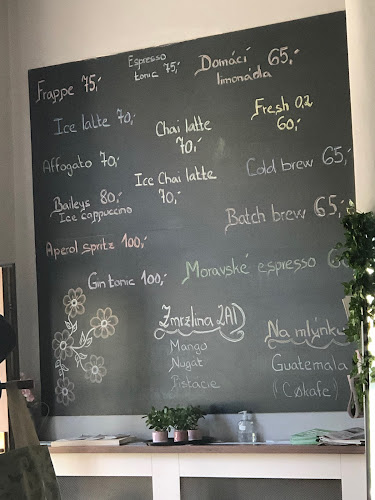 Frappe 75,-
Espresso
tonic 75,-
Domácí 65,-
limonáda
Ice latte 70,-
Chai latte
70,-
Fresh 0,2
60,-
Affogato 70,-
Ice Chai latte
70,-
Cold brew 65,-
Baileys 80,-
Ice cappuccino
Batch brew 65,-
Aperol spritz 100,-
Moravské espresso
Gin tonic 100,-
Zmrzlina
Mango
Nugát
Pistácie
Na mlýnku
Guatemala
(Cøkafe)